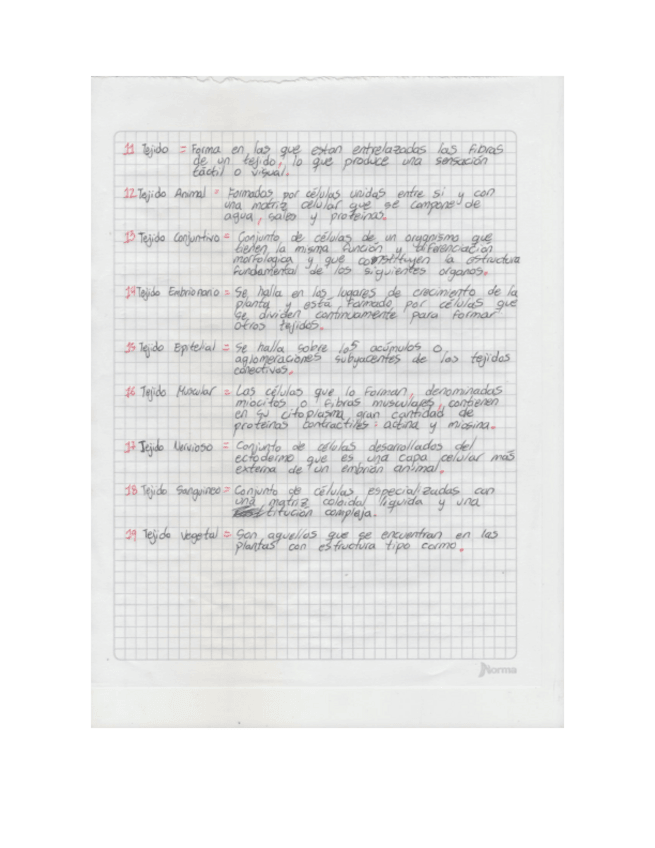 11 Tejido = Forma en las que estan entrelazadas las fibras
de un tejido, lo que produce una sensación
táctil o visual.
12 Tejido Animal = Formados por células unidas entre si y con
una matriz celular que se compone de
agua, sales y proteinas.
13 Tejido Conjuntivo = Conjunto de células de un organismo que
tienen la misma función y diferenciación
morfologica y que constituyen la estructura
fundamental de los siguientes organos.
14 Tejido Embrionario = Se halla en los lugares de crecimiento de la
planta y está formado por células que
se dividen continuamente para formar
otros tejidos.
15 Tejido Epitelial = Se halla sobre los acúmulos o
aglomeraciones subyacentes de los tejidos
conectivos.
16 Tejido Muscular = Las células que lo forman, denominadas
miocitos o fibras musculares, contienen
en su citoplasma gran cantidad de
proteinas contractiles: actina y miosina.
17 Tejido Nervioso = Conjunto de células desarrollados del
ectodermo que es una capa celular más
externa de un embrión animal.
18 Tejido Sanguineo = Conjunto de células especializadas con
una matriz coloidal liquida y una
titución compleja.
19 Tejido Vegetal = Son aquellos que se encuentran en las
plantas con estructura tipo cormo.
Norma